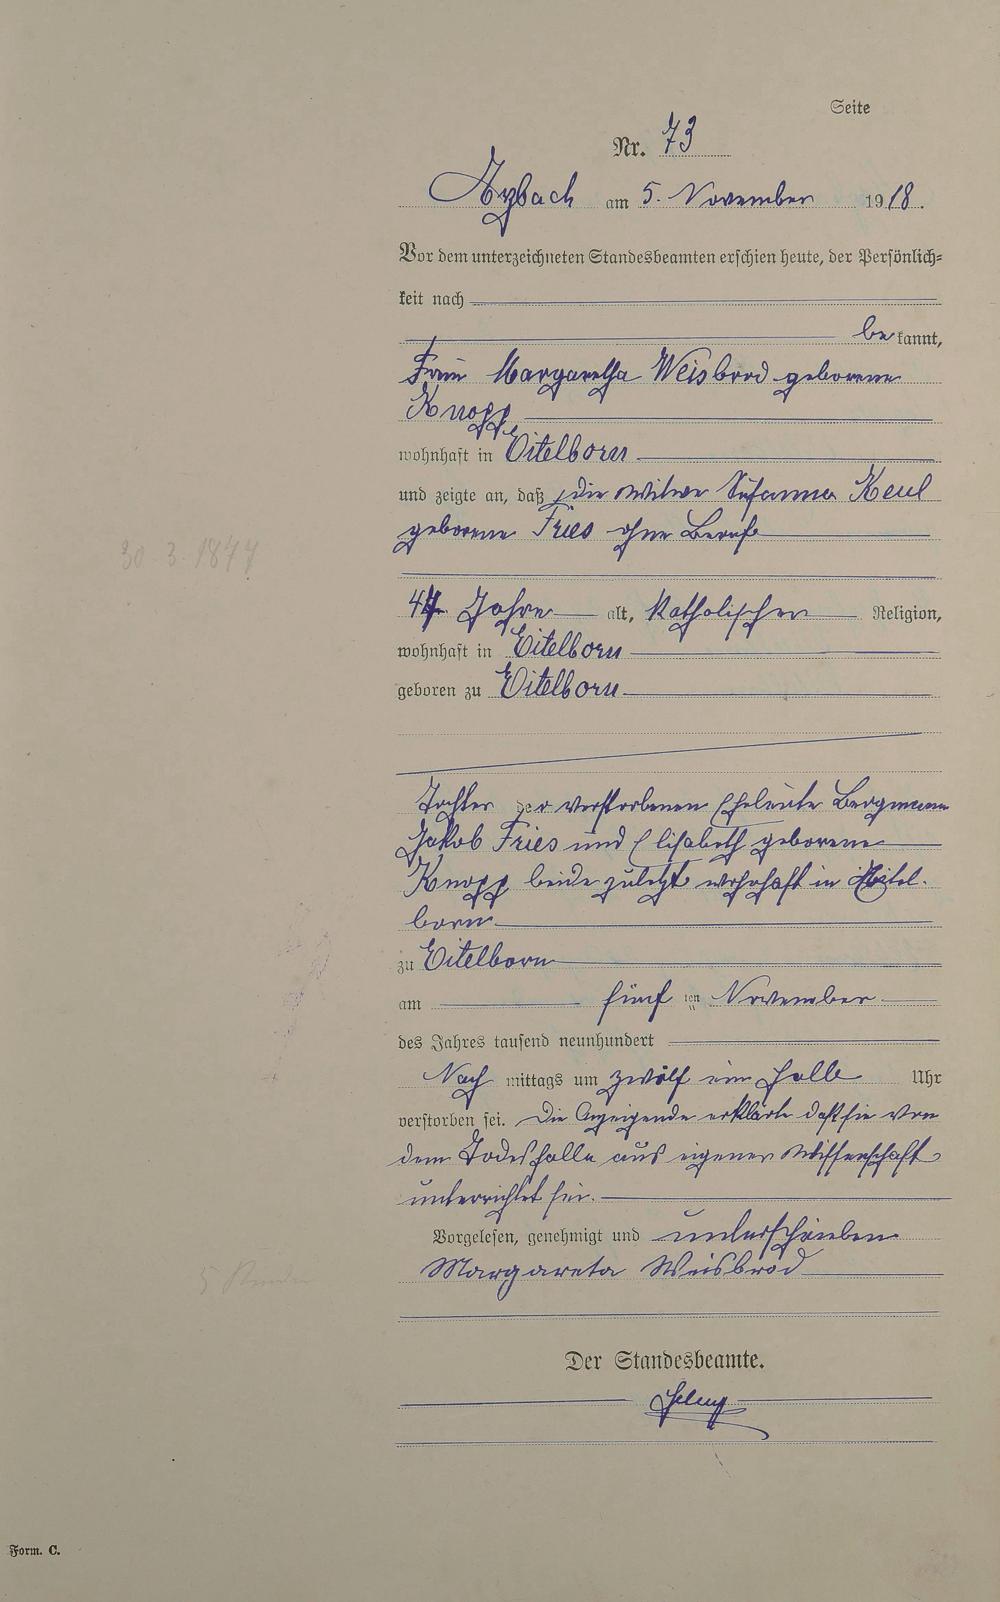 Seite
Nr. 73
Arzbach am 5. November 1918.
Vor dem unterzeichneten Standesbeamten erschien heute, der Persönlich=
keit nach
bekannt,
Frau Margaretha Weisbrod geborene
Knopp
wohnhaft in Eitelborn
und zeigte an, daß die Witwe Susanna Keul
geborene Fries ohne Beruf
30.3.1874
Jahre alt, katholischer Religion,
wohnhaft in Eitelborn
geboren zu Eitelborn
Tochter der verstorbenen Eheleute Bergmann
Jakob Fries und Elisabeth geborene
Knopp beide zuletzt wohnhaft in Eitel-
born
zu Eitelborn
am fünf ten November
des Jahres tausend neunhundert
Nach mittags um zwölf ein halb Uhr
verstorben sei. Die Anzeigende erklärte daß sie von
dem Todesfalle aus eigener Wissenschaft
unterrichtet sei.
Vorgelesen, genehmigt und unterschrieben
Margareta Weisbrod
Der Standesbeamte.
Form. C.